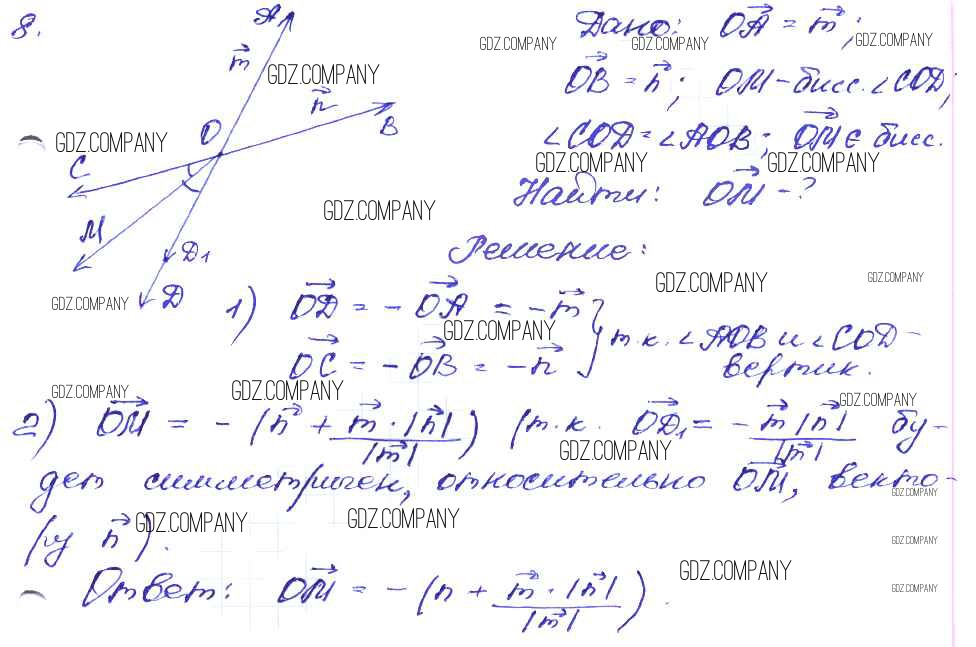 8.
A
m⃗
n⃗
O
B
C
M
D₁
D
Дано: OA⃗ = m⃗;
OB⃗ = n⃗; OM – бисс. ∠COD;
∠COD = ∠AOB; OM⃗ ∈ бисс.
Найти: OM⃗ – ?
Решение:
1) OD⃗ = – OA⃗ = – m⃗ } т.к. ∠AOB и ∠COD –
OC⃗ = – OB⃗ = – n⃗ } вертик.
2) OM⃗ = – (n⃗ + m⃗ · |n⃗| / |m⃗|) (т.к. OD₁⃗ = – m⃗ |n⃗| / |m⃗| бу-
дет симметричен, относительно OM⃗, векто-
ру n⃗).
Ответ: OM⃗ = – (n + m⃗ · |n⃗| / |m⃗|).
GDZ.COMPANY
GDZ.COMPANY
GDZ.COMPANY
GDZ.COMPANY
GDZ.COMPANY
GDZ.COMPANY
GDZ.COMPANY
GDZ.COMPANY
GDZ.COMPANY
GDZ.COMPANY
GDZ.COMPANY
GDZ.COMPANY
GDZ.COMPANY
GDZ.COMPANY
GDZ.COMPANY
GDZ.COMPANY
GDZ.COMPANY
GDZ.COMPANY
GDZ.COMPANY
GDZ.COMPANY
GDZ.COMPANY
GDZ.COMPANY